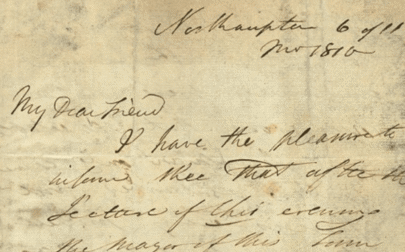 Northampton 6 of 11
Mo 1810
My Dear Friend
I have the pleasure to
inform thee that after the
Lecture of this evening
the Mayor of this Town